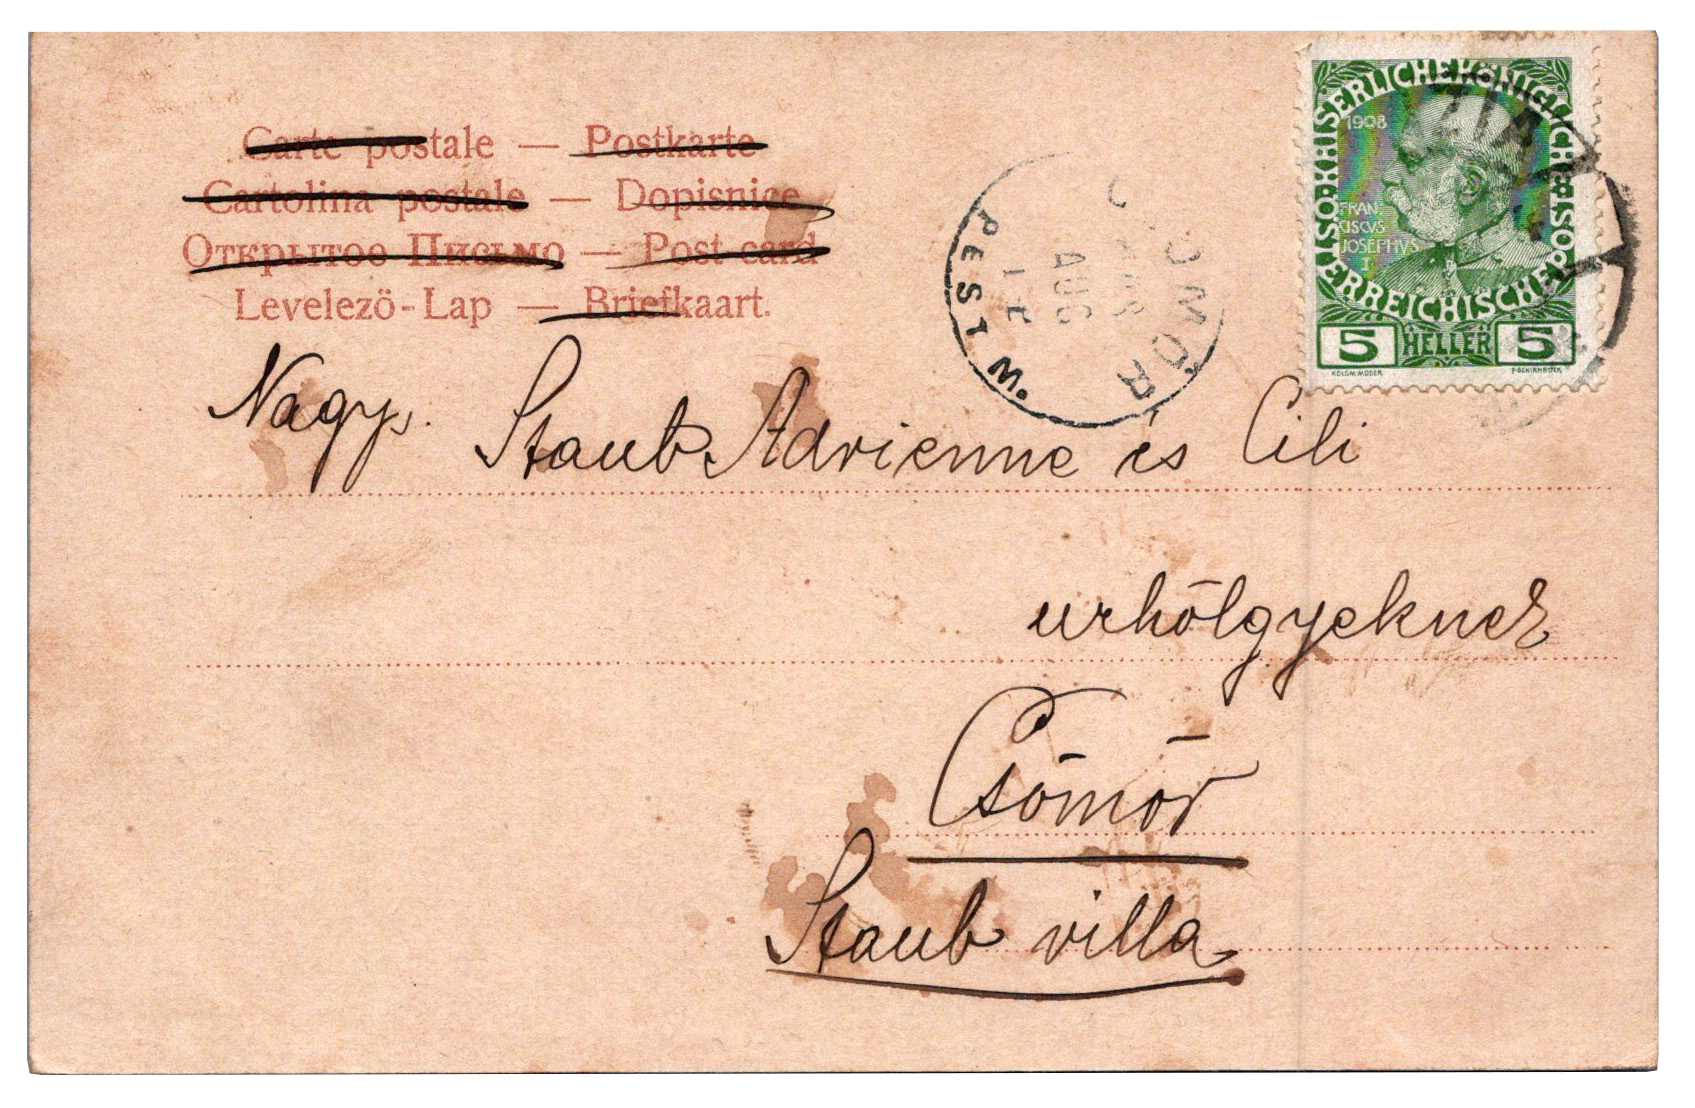 Carte postale — Postkarte
Cartolina postale — Dopisnice
Открытое Письмо — Post-card
Levelezö-Lap — Briefkaart.
KAISERLICHE KÖNIGLICHE
ÖSTERREICHISCHE POST
1908
FRAN
CISCVS
JOSEPHVS
I
5 HELLER 5
KOLOM·MOSER F·SCHIRNBÖCK
PEST
AUG
Nagys. Staub Adrienne és Cili
urhölgyeknek
Csömör
Staub villa